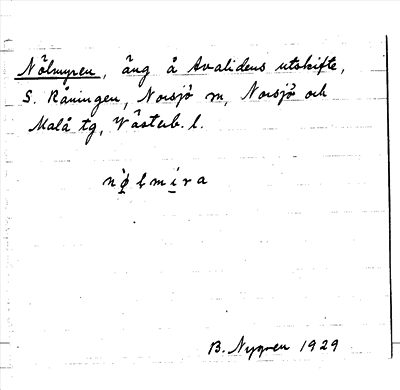 Nölmyren, äng å Avalidens utskifte,
S. Råningen, Norsjö sn, Norsjö och
Malå tg, Västerb. l.
nö̀lmira
B. Nygren 1929